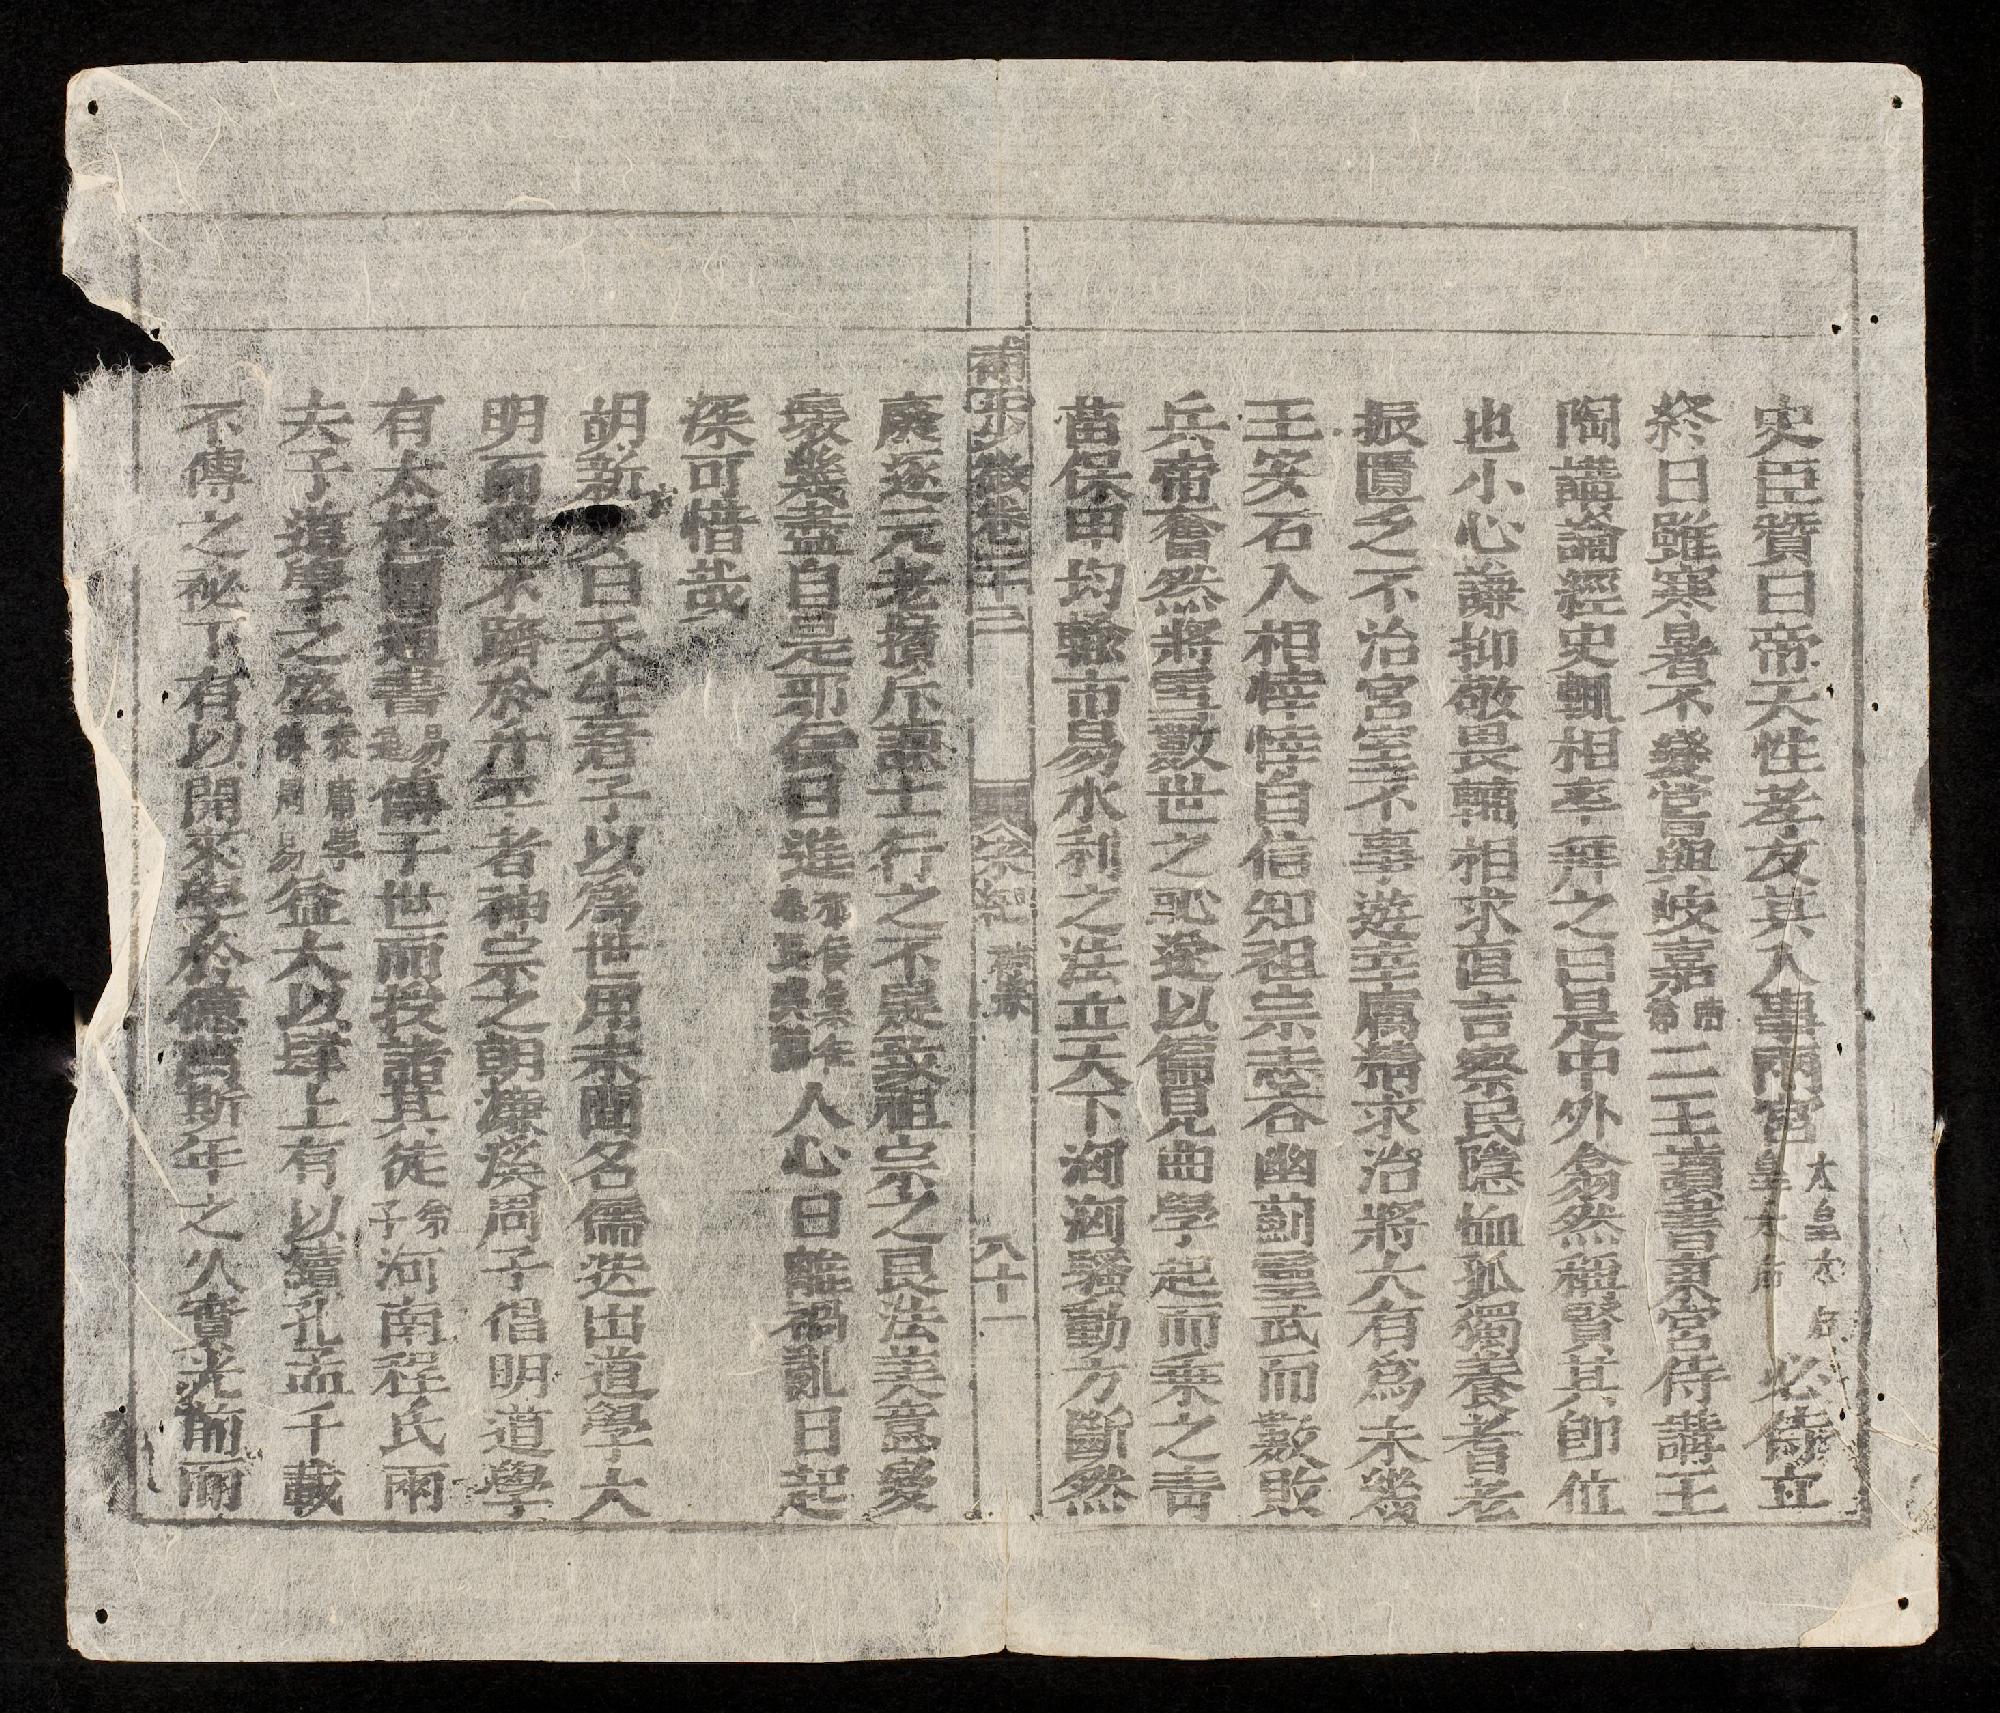 史臣贊曰帝天性孝友其入事兩宮太皇太后皇太后必侍立
終日雖寒暑不變嘗與岐嘉帝弟二王讀書東宮侍講王
陶講論經史輒相率拜之曰是中外翕然稱賢其即位
也小心謙抑敬畏輔相求直言察民隱恤孤獨養耆老
振匱乏不治宮室不事遊幸厲精求治將大有爲未幾
王安石入相悻悻自信知祖宗志吞幽薊靈武而數敗
兵帝奮然將雪數世之恥遂以偏見曲學起而乗之靑
苗保甲均輸市易水利之法立天下洶洶騷動方斷然
少微卷二十二 宋紀 神宗 八十一
廢逐元老擯斥諫士行之不疑祖宗之良法美意變
壞幾盡自是邪佞日進人心日離禍亂日起
深可惜哉
胡新安曰天生君子以爲世用宋聞名儒迭出道學大
明而世不躋於升平者神宗之朝濂溪周子倡明道學
有太極圖通書易通傳于世而授諸其徒弟子河南程氏兩
夫子道學之盛益大以肆上有以續孔孟千載
不傳之祕下有以開來學於億萬斯年之久實光前而